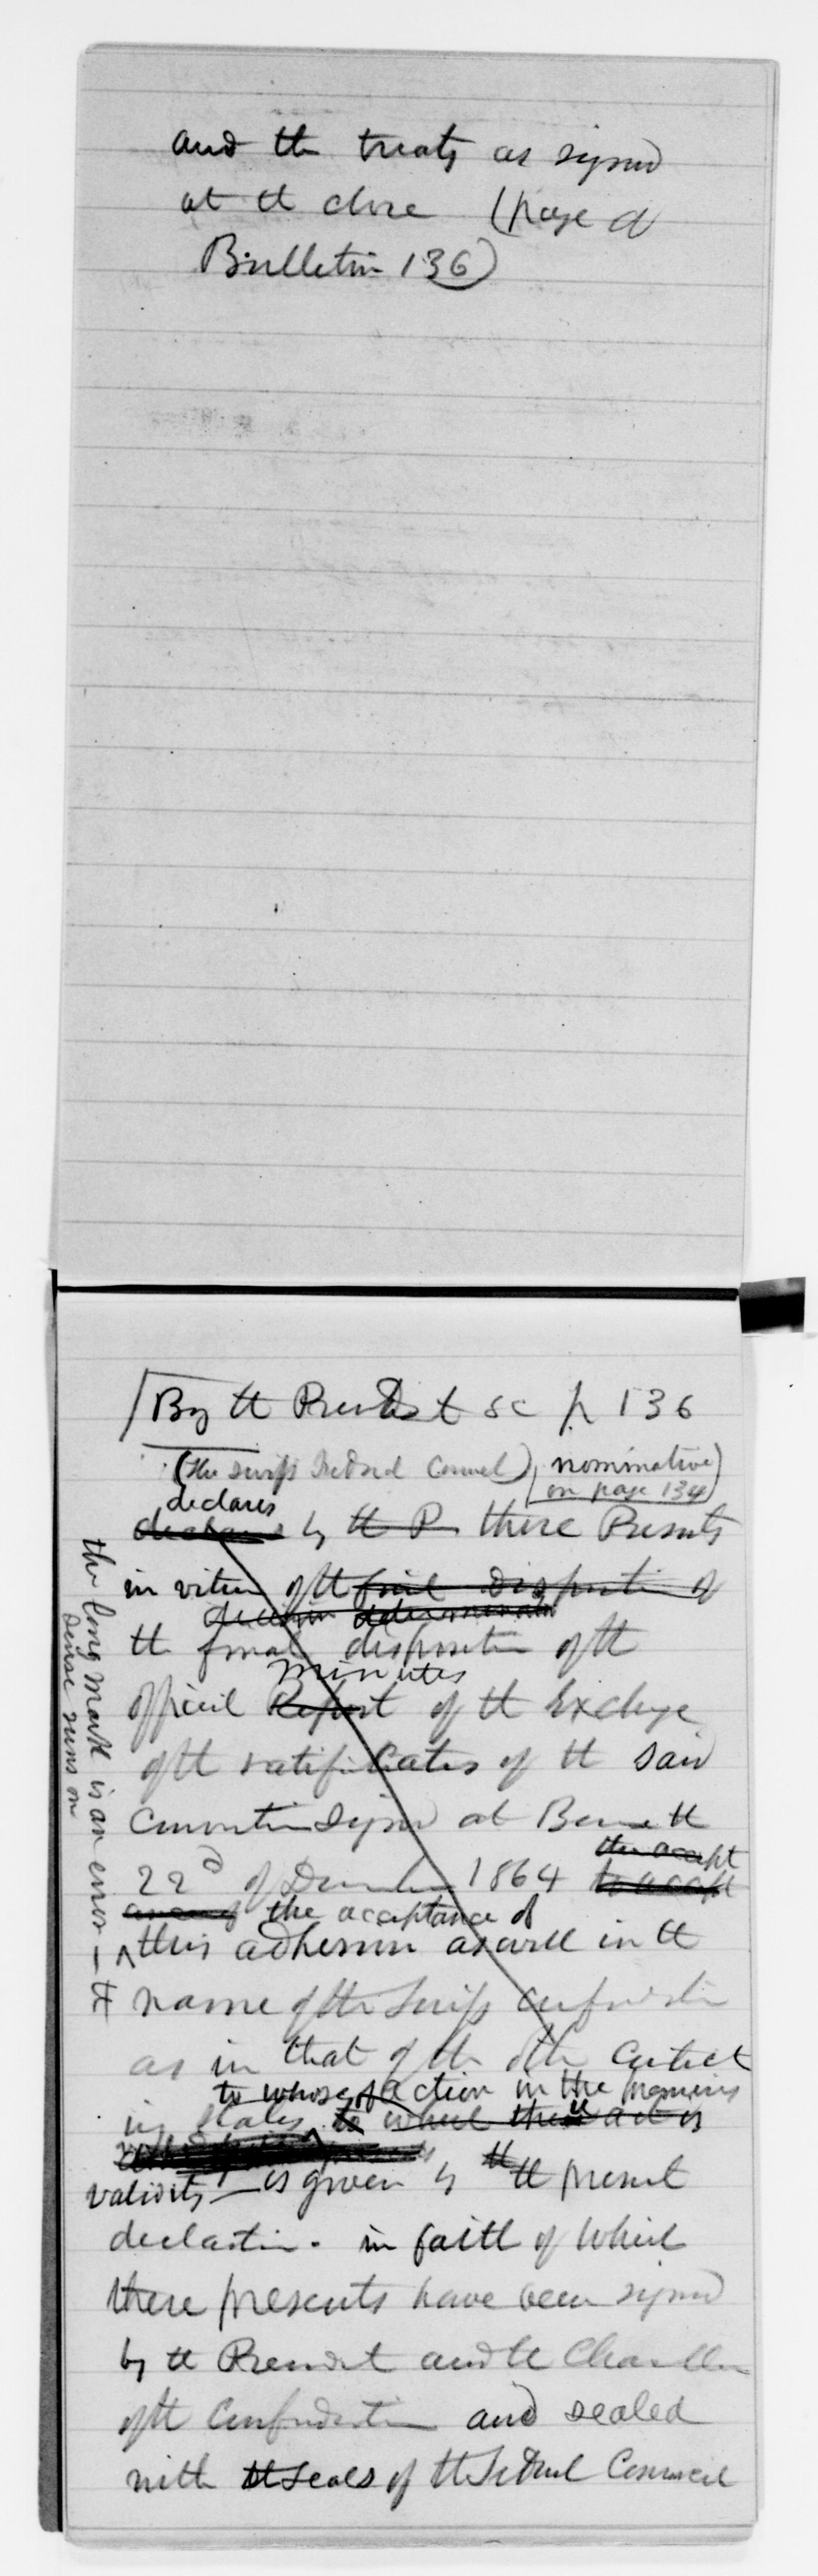 and the treaty as signed
at the close (page of
Bulletin 136)
By the President &c p 136
(the swiss Federal Council) (nominative
on page 134)
declares
by the P these Presents
in virtue of the final disposition of
decision determination
the final disposition of the
minutes
official Report of the Exchange
of the ratificates of the said
Convention signed at Berne the
the accept
22d of December 1864 to accept
the acceptance of
this adhesion as well in the
name of the Swiss Confederation
as in that of the other Contract
to whose action in the premises
ing States to which these act is
validity is given by the present
declaration. in faith of which
these presents have been signed
by the President and the Chancellor
of the Confederation and sealed
with the seals of the Federal Council
the long mark is an error — the
sense runs on